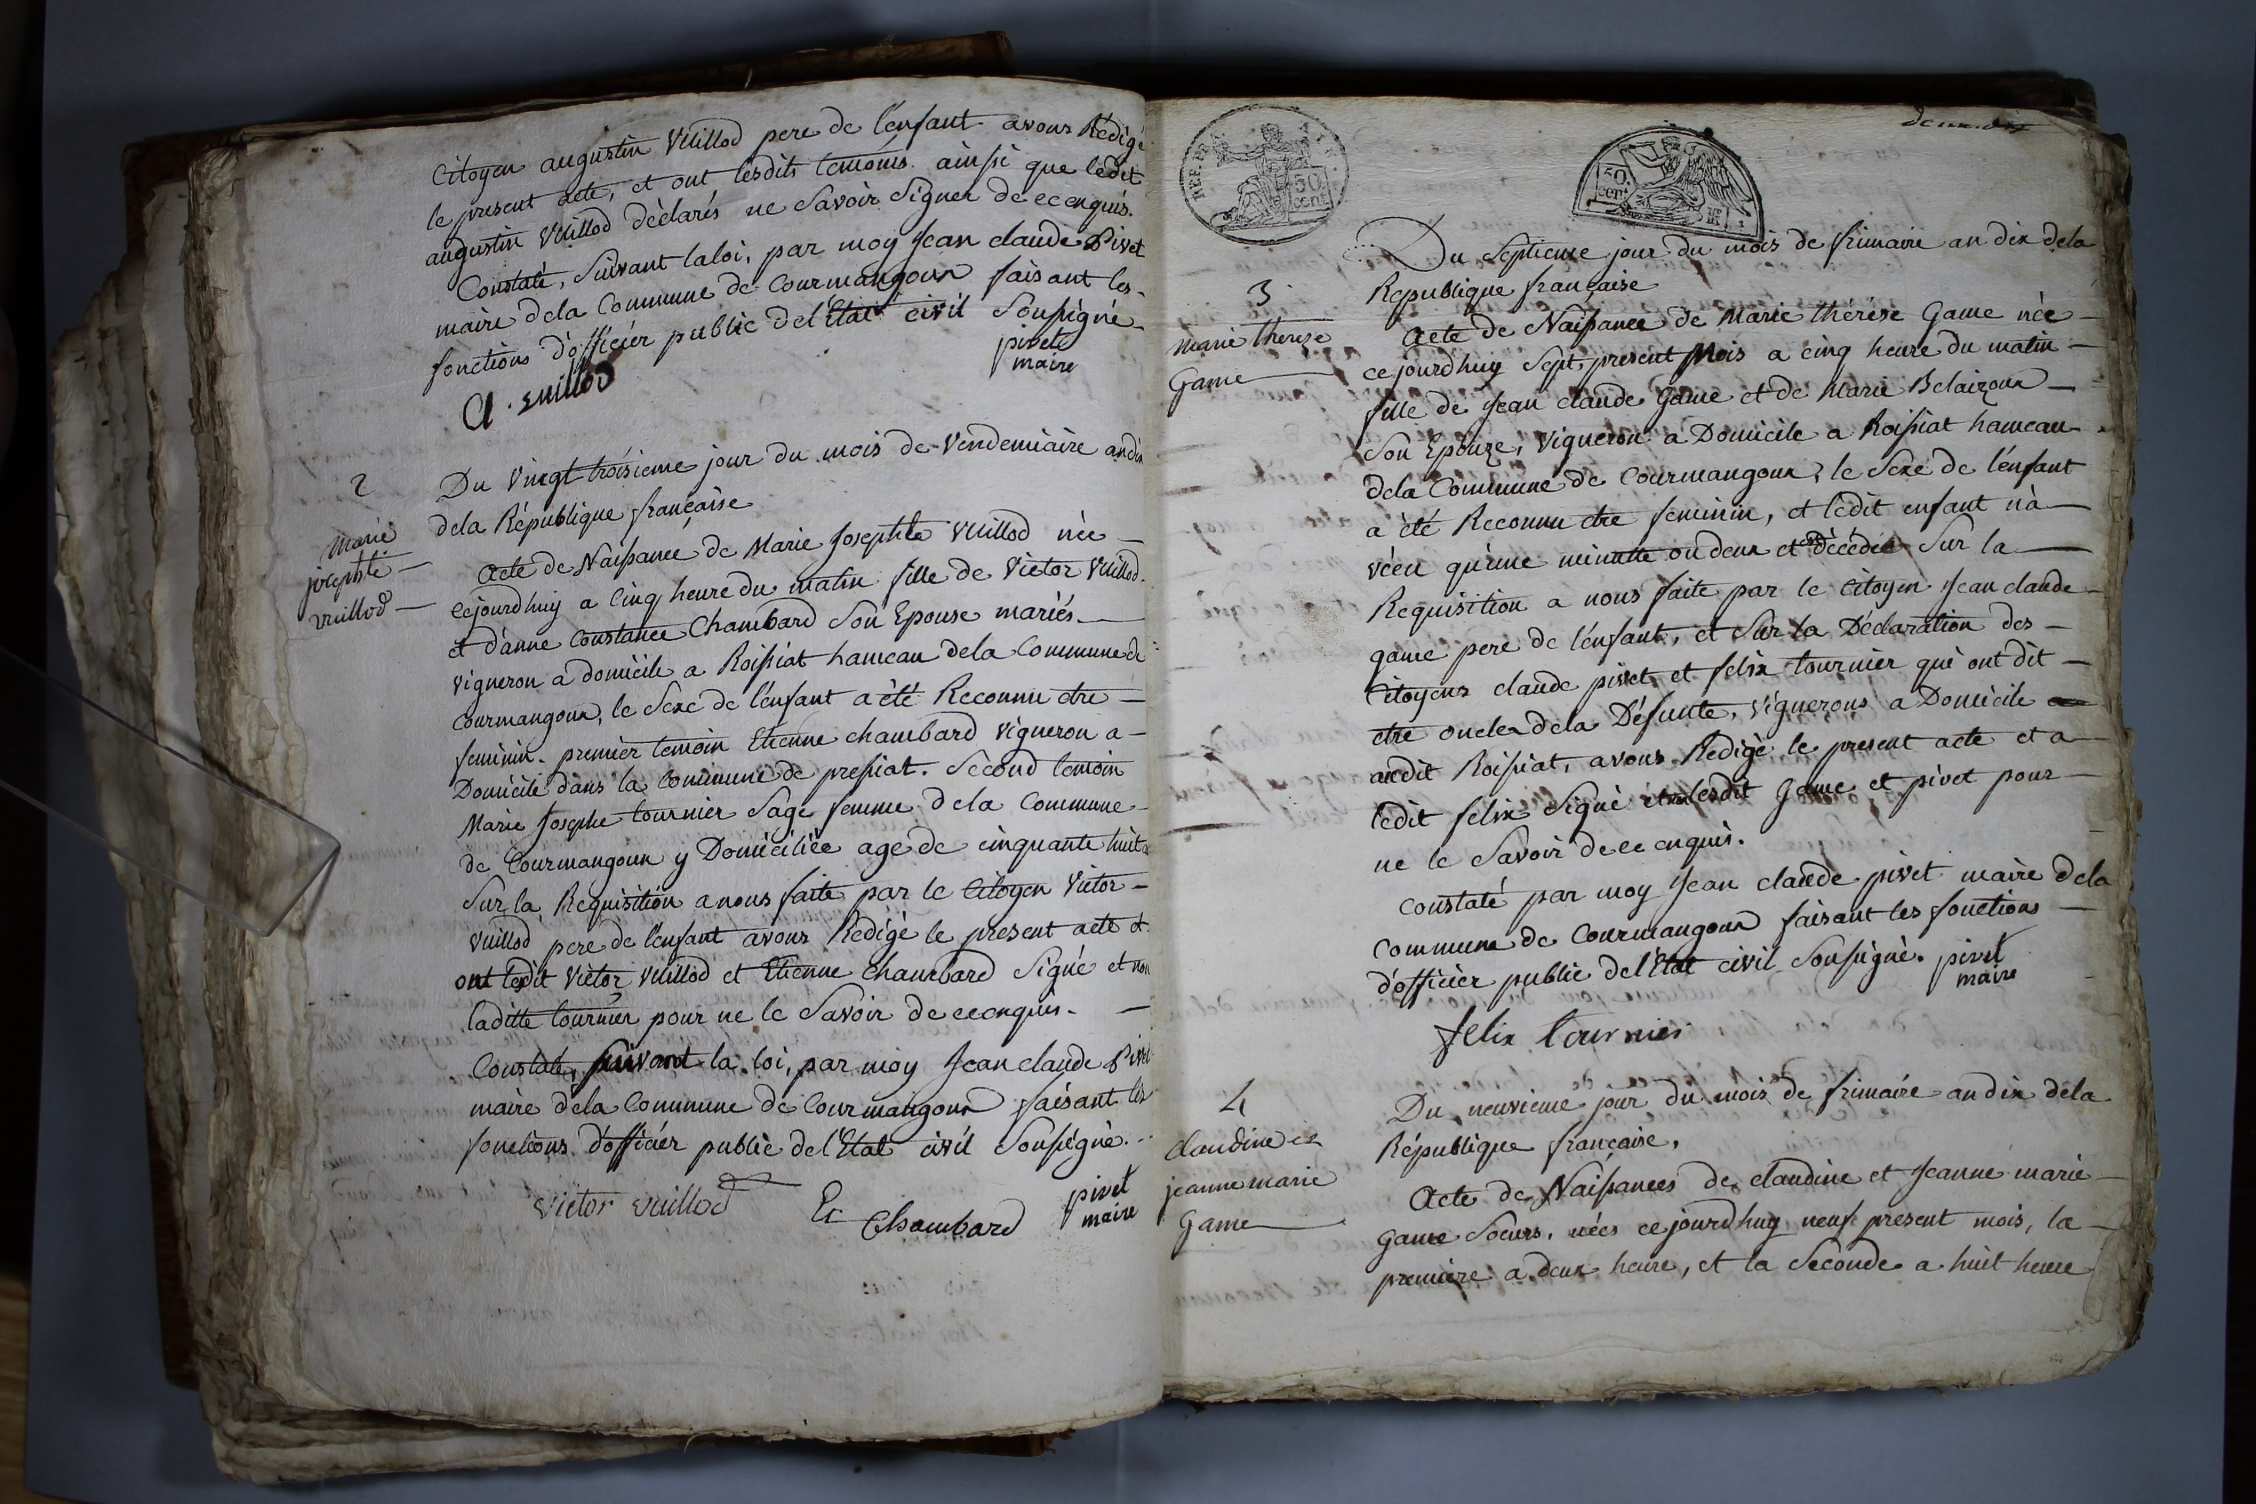 Citoyen augustin Vuillod pere de l'enfant avons Rédigé
le present acte, et ont lesdits temoins ainsi que ledit
augustin Vuillod déclarés ne Savoir Signer de ce enquis.
Constaté, Suivant la loi, par moy Jean claude Pivet
maire dela Commune de Courmangoux faisant les
fonctions d'officier public del'Etat civil Soussigné
pivet
maire
A. vuillod
2
Du Vingt troisieme jour du mois de Vendemiaire an dix
dela République française
marie
josephte
vuillod
Acte de Naissance de Marie Josephte Vuillod née
cejourdhuy a Cinq heure du matin fille de Victor Vuillod
et d'anne Constance Chambard Son Epouse mariés
vigneron a domicile a Roissiat hameau dela Commune de
courmangoux, le Sexe de l'enfant a été Reconnu etre
feminin. premier temoin Etienne chambard vigneron a
Domicile dans la Commune de pressiat. Second temoin
Marie Josephe tournier Sage femme dela Commune
de Courmangoux y Domiciliée age de cinquante huit
Sur la Requisition a nous faite par le Citoyen Victor
Vuillod pere de l'enfant avons Redigé le present acte et
ont ledit Victor Vuillod et Etienne Chambard Signé et non
laditte tournier pour ne le Savoir de ce enquis.
Constaté, Suivant la loi, par moy Jean claude Pivet
maire dela Commune de Courmangoux faisant les
fonctions d'officier public del'Etat civil Soussigné.
victor vuillod Et Chambard pivet
maire
50. cent
50. cent
Du Septieme jour du mois de frimaire an dix dela
Republique française
3
marie therese
Game
Acte de Naissance de Marie thérése Game née
cejourdhuy Sept present Mois a cinq heure du matin
fille de Jean claude Game et de Marie Belairoux
Son Epouze, Vigneron a Domicile a Roissiat hameau
dela Commune de Courmangoux, le Sexe de l'enfant
a été Reconnu etre feminin, et ledit enfant n'a
véeu qu'une minute ou deux et est décédée Sur la
Requisition a nous faite par le Citoyen Jean claude
game pere de l'enfant, et Sur la Déclaration des
Citoyens claude pivet et felix tournier qui ont dit
etre oncles dela Défunte, Vignerons a Domicile
audit Roissiat, avons Redigé le present acte et a
ledit felix Signé et non lesdit Game et pivet pour
ne le Savoir de ce enquis.
constaté par moy Jean claude pivet maire dela
commune de Courmangoux faisant les fonctions
d'officier public del'Etat civil Soussigné. pivet
maire
felix tournier
4
Du neuvieme jour du mois de frimaire an dix dela
République française,
claudine et
jeanne marie
Game
Acte de Naissances de claudine et Jeanne marie
Game Soeurs, nées cejourdhuy neuf present mois, la
premiere a deux heure, et la Seconde a huit heure